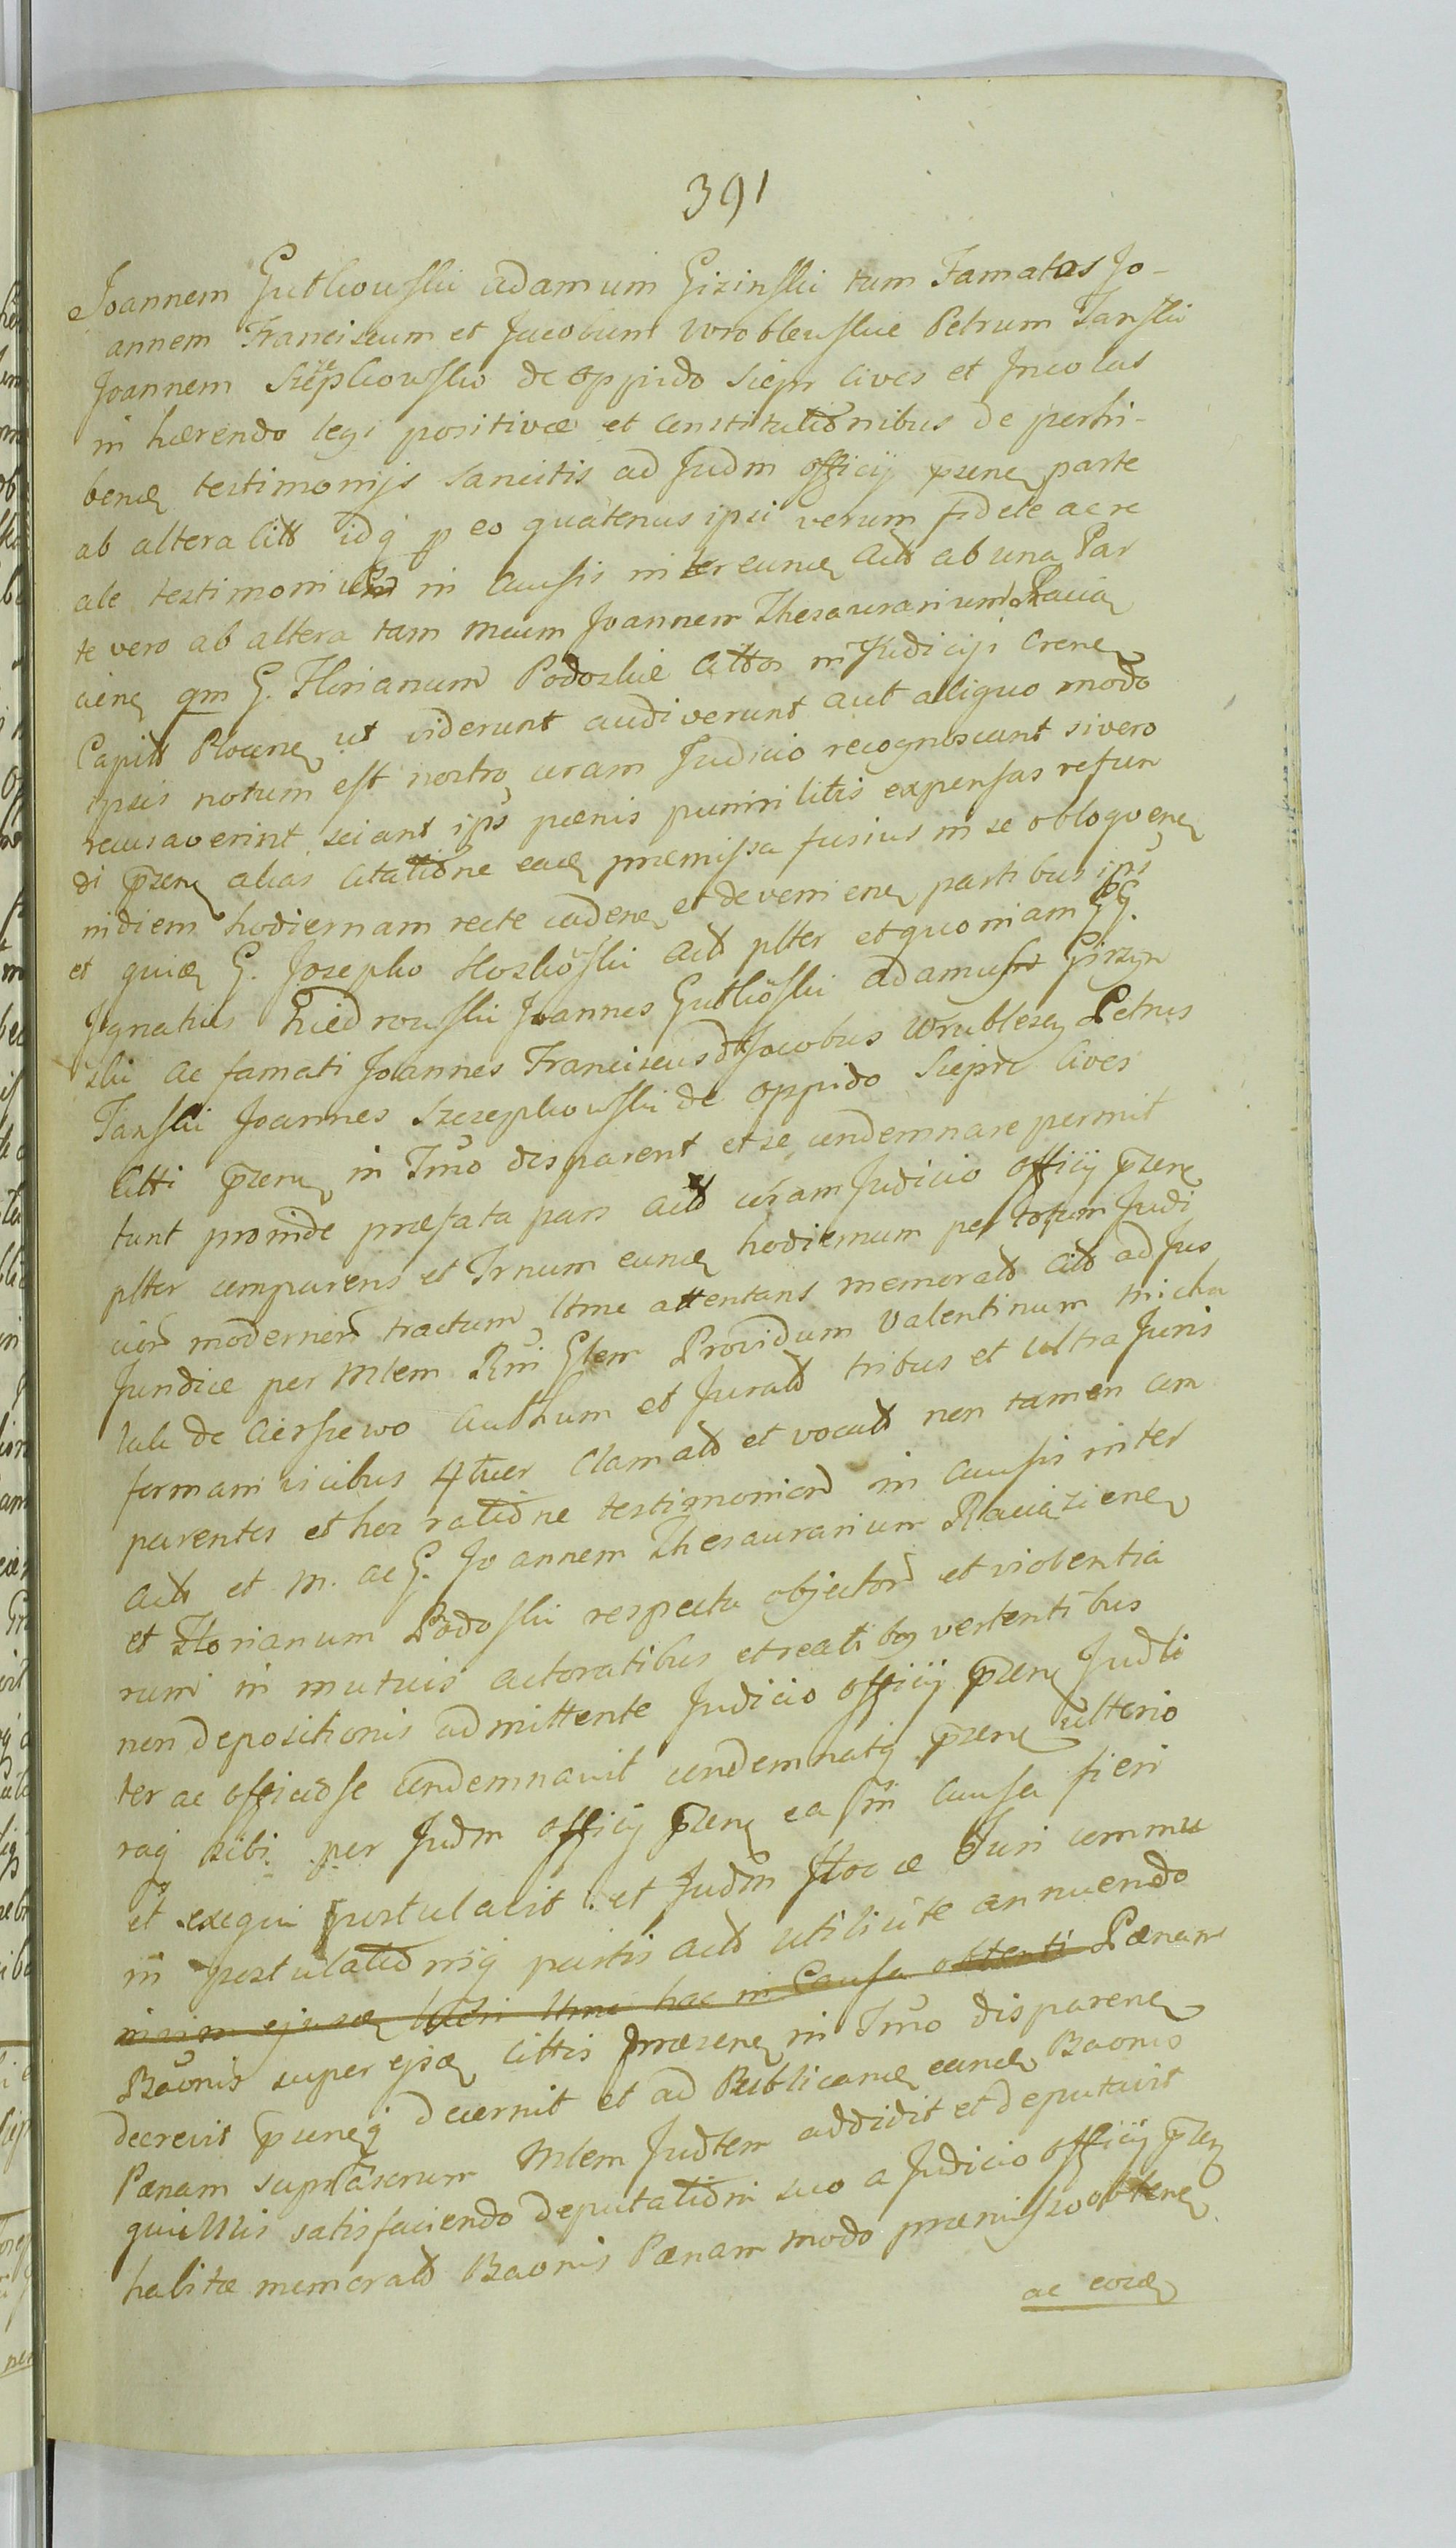 391
Joannem Gutkowski Adamum Gizinski tum Famatos Jo-
annem Franciscum et Jacobum Wroblewskie Petrum Tanski
Joannem Szczepkowsko de oppido Siepr Cives et Incolas
in hærendo legi positivæ et Constitutionibus de perhi-
bend testimonijs sancitis ad Judm officij præsen parte
ab altera Citt idq p eo quatenus ipsi verum fidele ac re
ale testimonium in Causis inter eund Act ab una Par
te vero ab altera tam Meum Joannem Thesaurarium Racia
cien qm G. Florianum Podoskie Cittos in Judicijs Crenen
Capitt Plocen ut viderunt audiverunt aut aliquo modo
ipsis notum est nostro coram Judicio recognoscant si vero
recusaverint sciant ips pænis puniri litis expensas refun
di præsen alias Citatione ead præmissa fusius in se obloquen
in diem hodiernam recte caden et devenien partibus ips
et quia G. Josepho Act plter et quoniam GG.
Ignatius Joannes Gutkoski Adamus Girzyn
ski ac famati Joannes Franciscus et Jacobus Wrublescy Petrus
Tanski Joannes Szczepkowski de oppido Siepre Cives
Citti præsen in Tmo disparent et se condemnare permit
tunt proinde præfata pars Act coram Judicio officij præsen
plter comparens et Trnum eund hodiernum per totum Judi
cior modernor tractum ltme attentans memorat Citt ad Jus
Juridice per Mlem Rni Glem Providum Valentinum Micha
lak de Cierszewo Authum et Jurat tribus et ultra Juris
formam vicibus 4ter Clamat et vocat non tamen com
parentes et hoc ratione testimonior in Causis inter
Act et M. ac G. Joannem Thesaurarium Raciązienen
et Florianum Podoski respectu objector et violentia
rum in mutuis actoratibus et reatibus vertentibus
non depositionis admittente Judicio officij præsen Judli
ter ac officiose Condemnavit condemnatq præsen ulterio
raq sibi per Judm officij præsen ea in Causa fieri
et exequi postulavit et Judm hocce Juri commu
ni postulationiq partis Act utilicite annuendo
ejusd hac in Causa obtenti Pænam
Baonis super ejsd Cittis præsen in Tmo disparen
decrevit præsenq decernit et ad Publicand eand Baonis
Pænam suprascrum Mlem Judlem addidit et deputavit
qui Mlis satisfaciendo deputationi suo a Judicio officij præsen
habitæ memorat Baonis Pænam modo præmisso obten
ac eosd